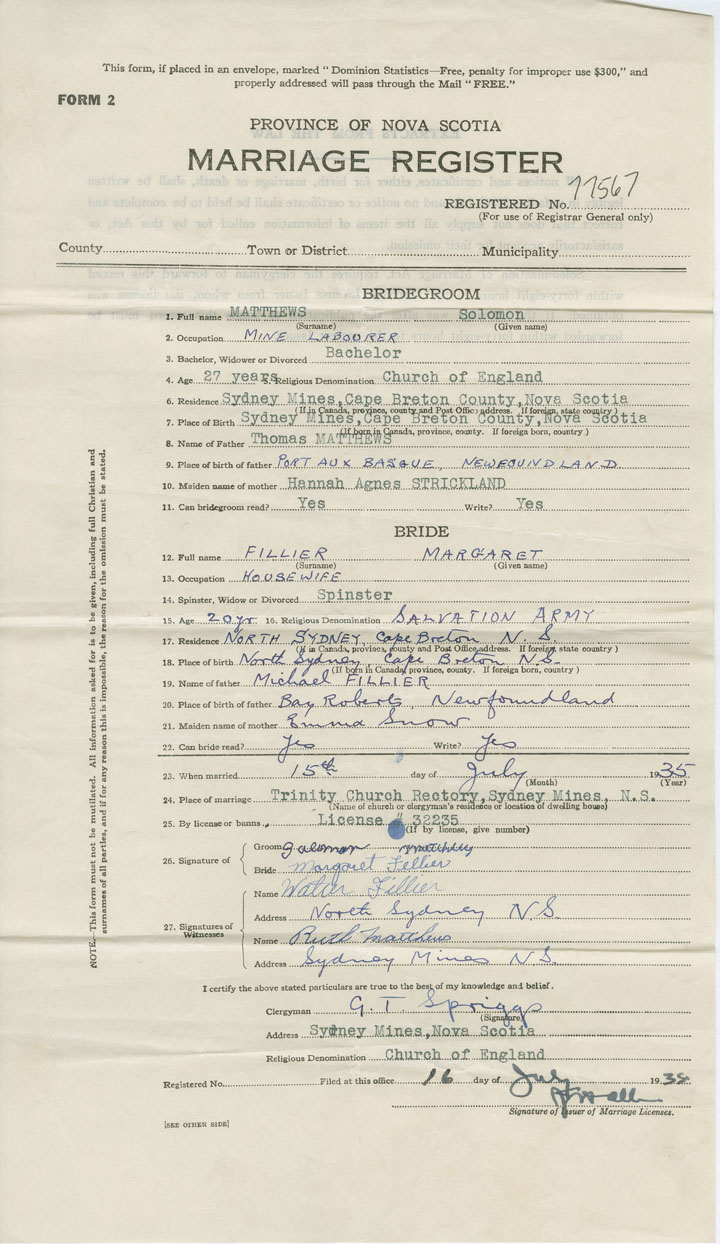 This form, if placed in an envelope, marked "Dominion Statistics—Free, penalty for improper use $300," and
properly addressed will pass through the Mail "FREE."
FORM 2
PROVINCE OF NOVA SCOTIA
MARRIAGE REGISTER
REGISTERED No. 77567
(For use of Registrar General only)
County Town or District Municipality
BRIDEGROOM
1. Full name MATTHEWS Solomon
(Surname) (Given name)
2. Occupation MINE LABOURER
3. Bachelor, Widower or Divorced Bachelor
4. Age 27 years 5. Religious Denomination Church of England
6. Residence Sydney Mines, Cape Breton County, Nova Scotia
(If in Canada, province, county and Post Office address. If foreign, state country)
7. Place of Birth Sydney Mines, Cape Breton County, Nova Scotia
(If born in Canada, province, county. If foreign born, country)
8. Name of Father Thomas MATTHEWS
9. Place of birth of father PORT AUX BASQUE, NEWFOUNDLAND
10. Maiden name of mother Hannah Agnes STRICKLAND
11. Can bridegroom read? Yes Write? Yes
BRIDE
12. Full name FILLIER MARGARET
(Surname) (Given name)
13. Occupation HOUSEWIFE
14. Spinster, Widow or Divorced Spinster
15. Age 20 yr 16. Religious Denomination SALVATION ARMY
17. Residence NORTH SYDNEY, Cape Breton N. S.
(If in Canada, province, county and Post Office address. If foreign, state country)
18. Place of birth North Sydney Cape Breton N.S.
(If born in Canada, province, county. If foreign born, country)
19. Name of father Michael FILLIER
20. Place of birth of father Bay Roberts, Newfoundland
21. Maiden name of mother Emma Snow
22. Can bride read? Yes Write? Yes
23. When married 15th day of July 1935
(Month) (Year)
24. Place of marriage Trinity Church Rectory, Sydney Mines, N.S.
(Name of church or clergyman's residence or location of dwelling house)
25. By license or banns License # 32235
(If by license, give number)
26. Signature of Groom Solomon Matthews
Bride Margaret Fillier
27. Signatures of Witnesses
Name Walter Fillier
Address North Sydney N.S.
Name Ruth Matthews
Address Sydney Mines N.S.
I certify the above stated particulars are true to the best of my knowledge and belief.
Clergyman G. T. Spriggs
(Signature)
Address Sydney Mines, Nova Scotia
Religious Denomination Church of England
Registered No. Filed at this office 16 day of July 1935
Signature of Issuer of Marriage Licenses.
[SEE OTHER SIDE]
NOTE.—This form must not be mutilated. All information asked for is to be given, including full Christian and
surnames of all parties, and if for any reason this is impossible, the reason for the omission must be stated.